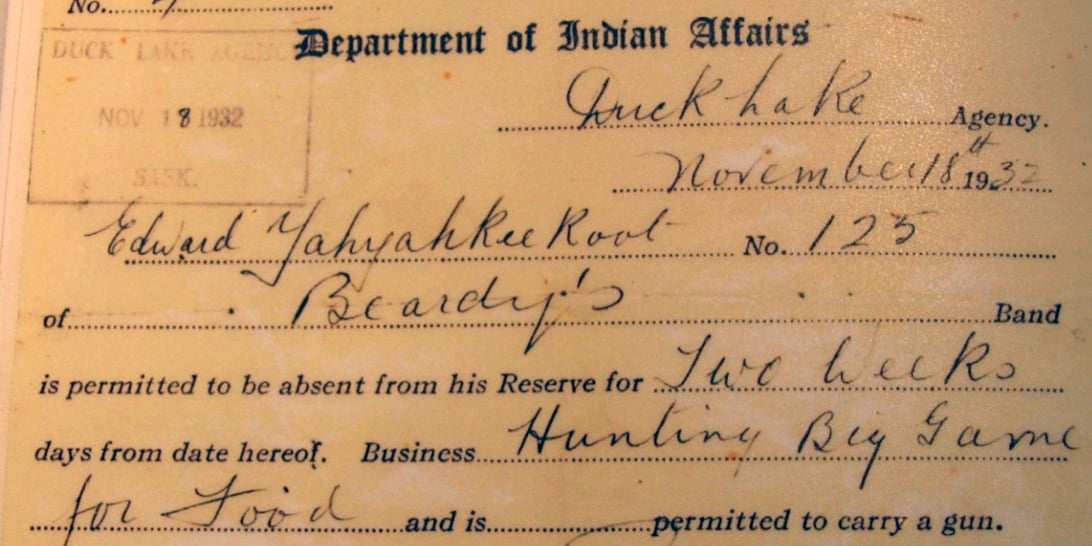 No.
DUCK LAKE AGENCY
Department of Indian Affairs
Duck Lake Agency.
NOV 18 1932
November 18th 1932
SASK.
Edward Yahyahkeekoot No. 125
of Beardy's Band
is permitted to be absent from his Reserve for Two Weeks
days from date hereof. Business Hunting Big Game
for Food and is permitted to carry a gun.